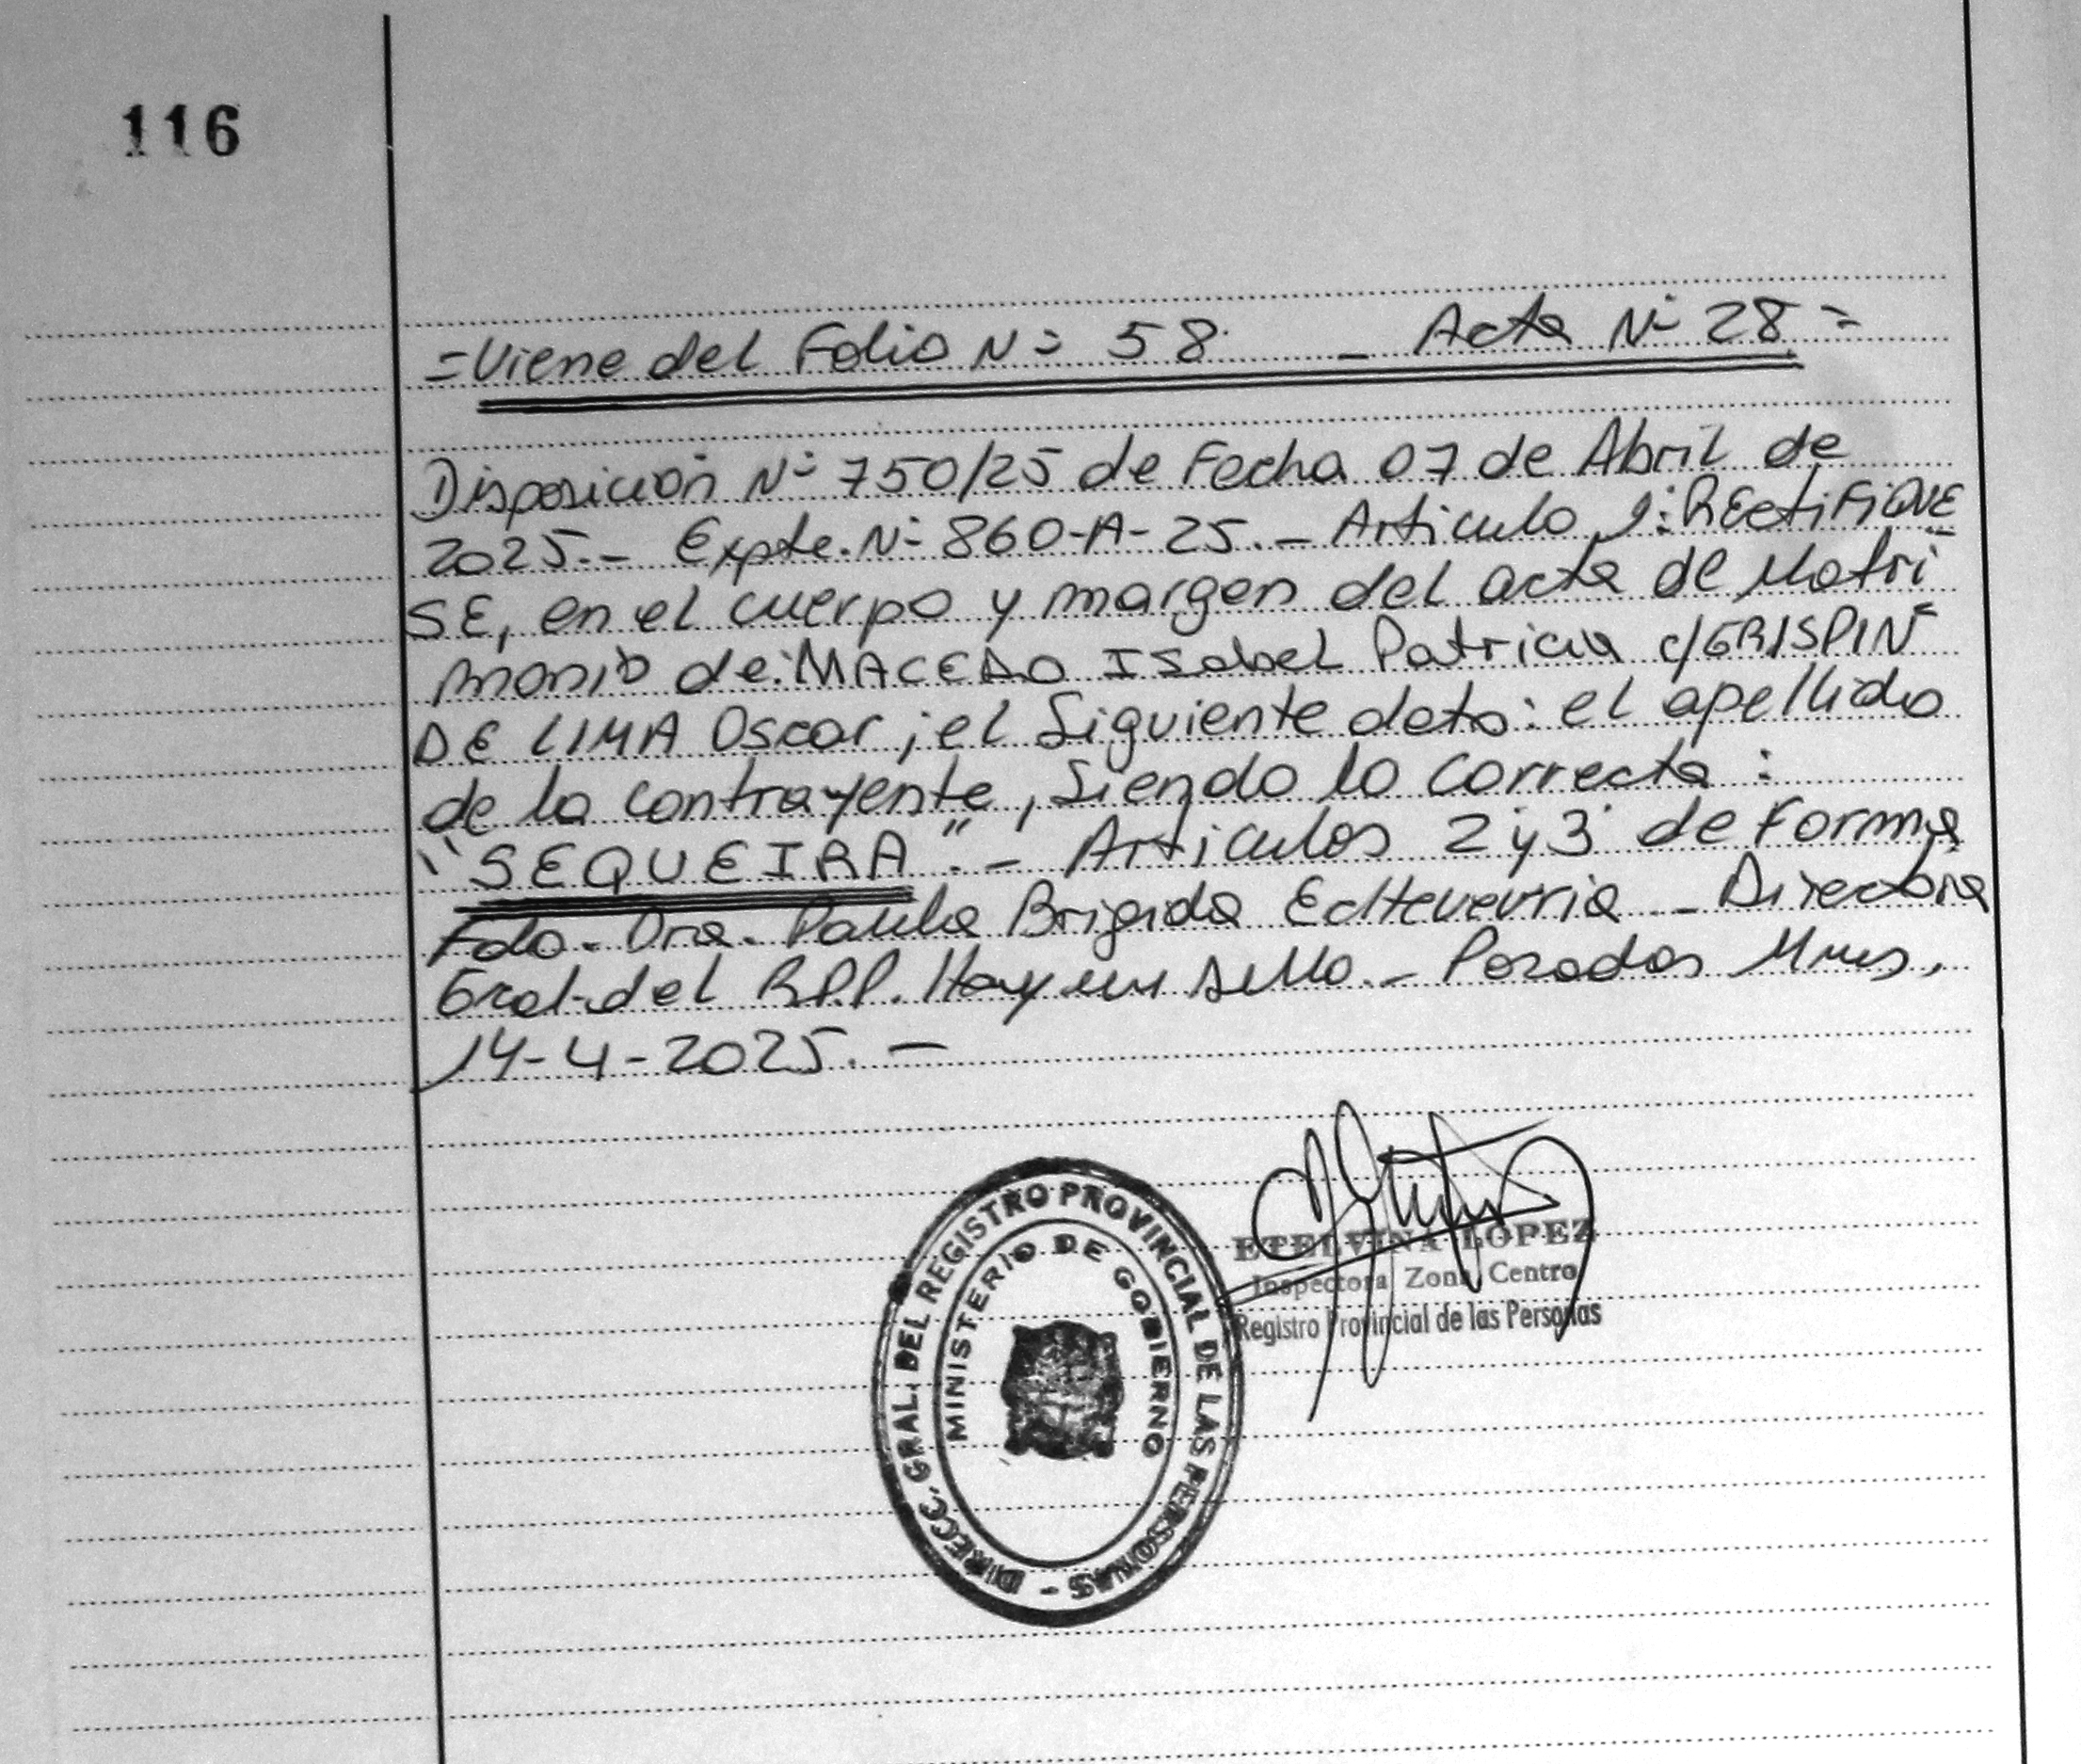 116
=Viene del Folio Nº 58 - Acta Nº 28=
Disposición Nº 750/25 de Fecha 07 de Abril de
2025.- Expte. Nº 860-A-25.- Articulo 1º: REctiFiQUE
SE, en el cuerpo y margen del acta de Matri
monio de: MACEDO ISabel Patricia c/GRISPIN
DE LIMA Oscar; el Siguiente dato: el apellido
de la contrayente, Siendo lo correcta:
"SEQUEIRA".- Articulos 2 y 3 de Forma
Fdo. Dra. Paula Brigida Echeverria - Directora
Gral. del R.P.P. Hay un sello.- Posadas Mnes,
14-4-2025.-
DIRECC. GRAL. DEL REGISTRO PROVINCIAL DE LAS PERSONAS -
MINISTERIO DE GOBIERNO
ETELVINA LOPEZ
Inspectora Zona Centro
Registro Provincial de las Personas